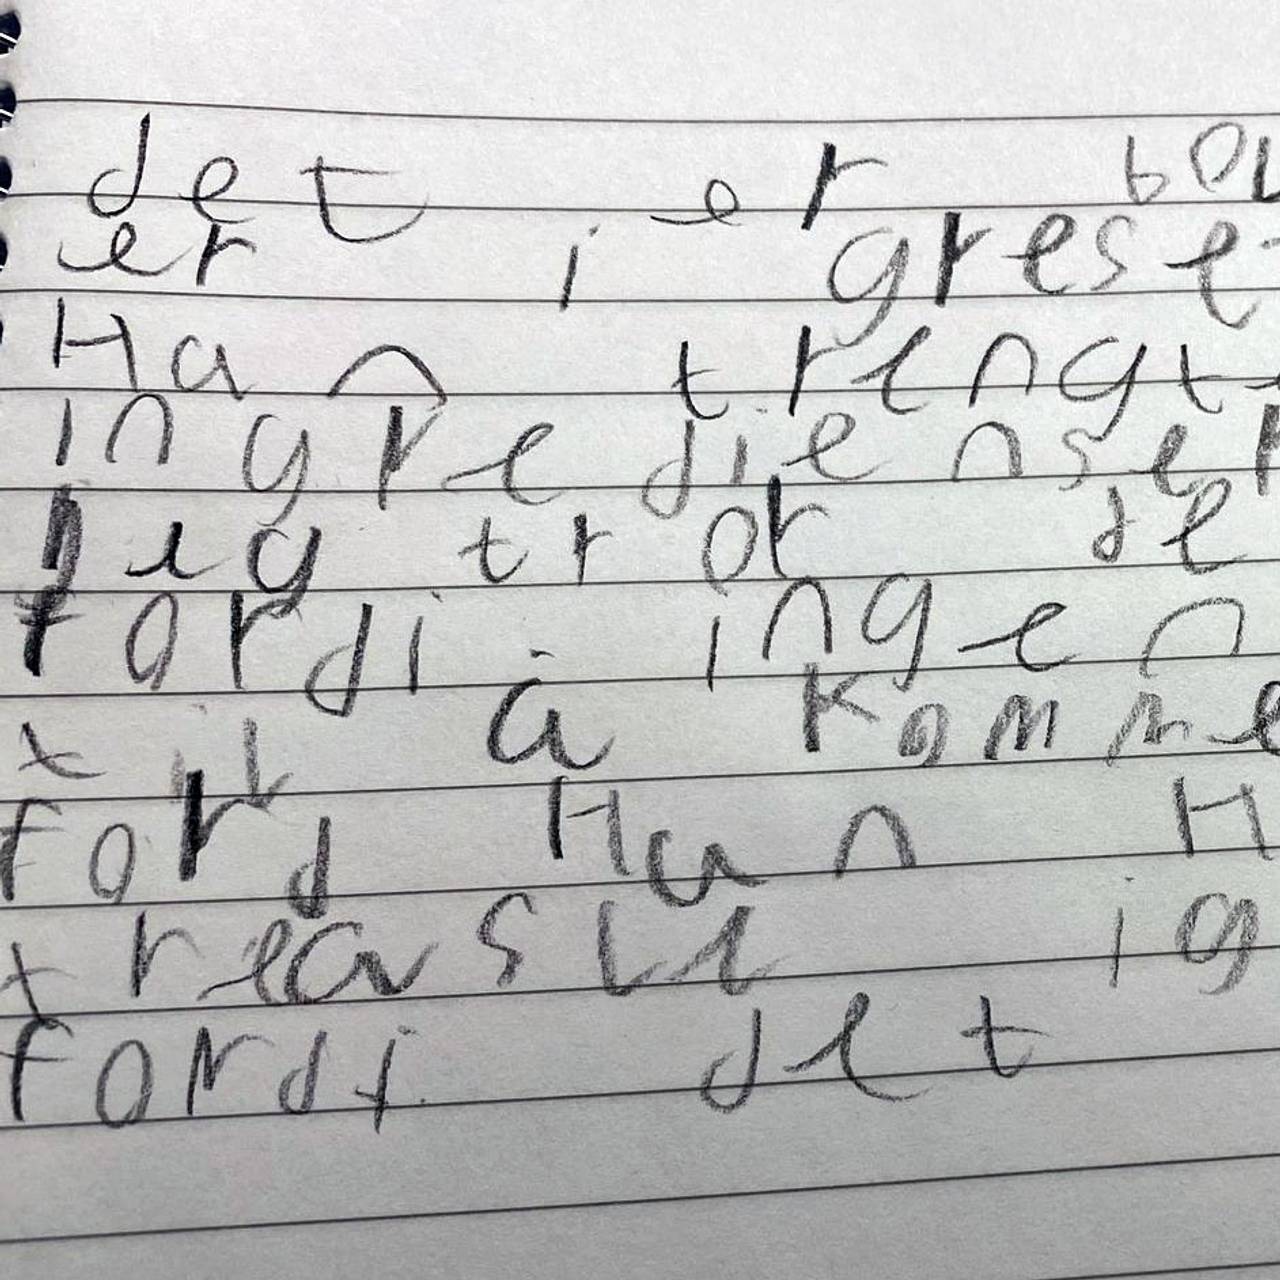 det er bou
er i greset
Han trengte
ingredienser
heg tror de
fordi ingen
til å komme
ford Han H
treasle ig
fordi det